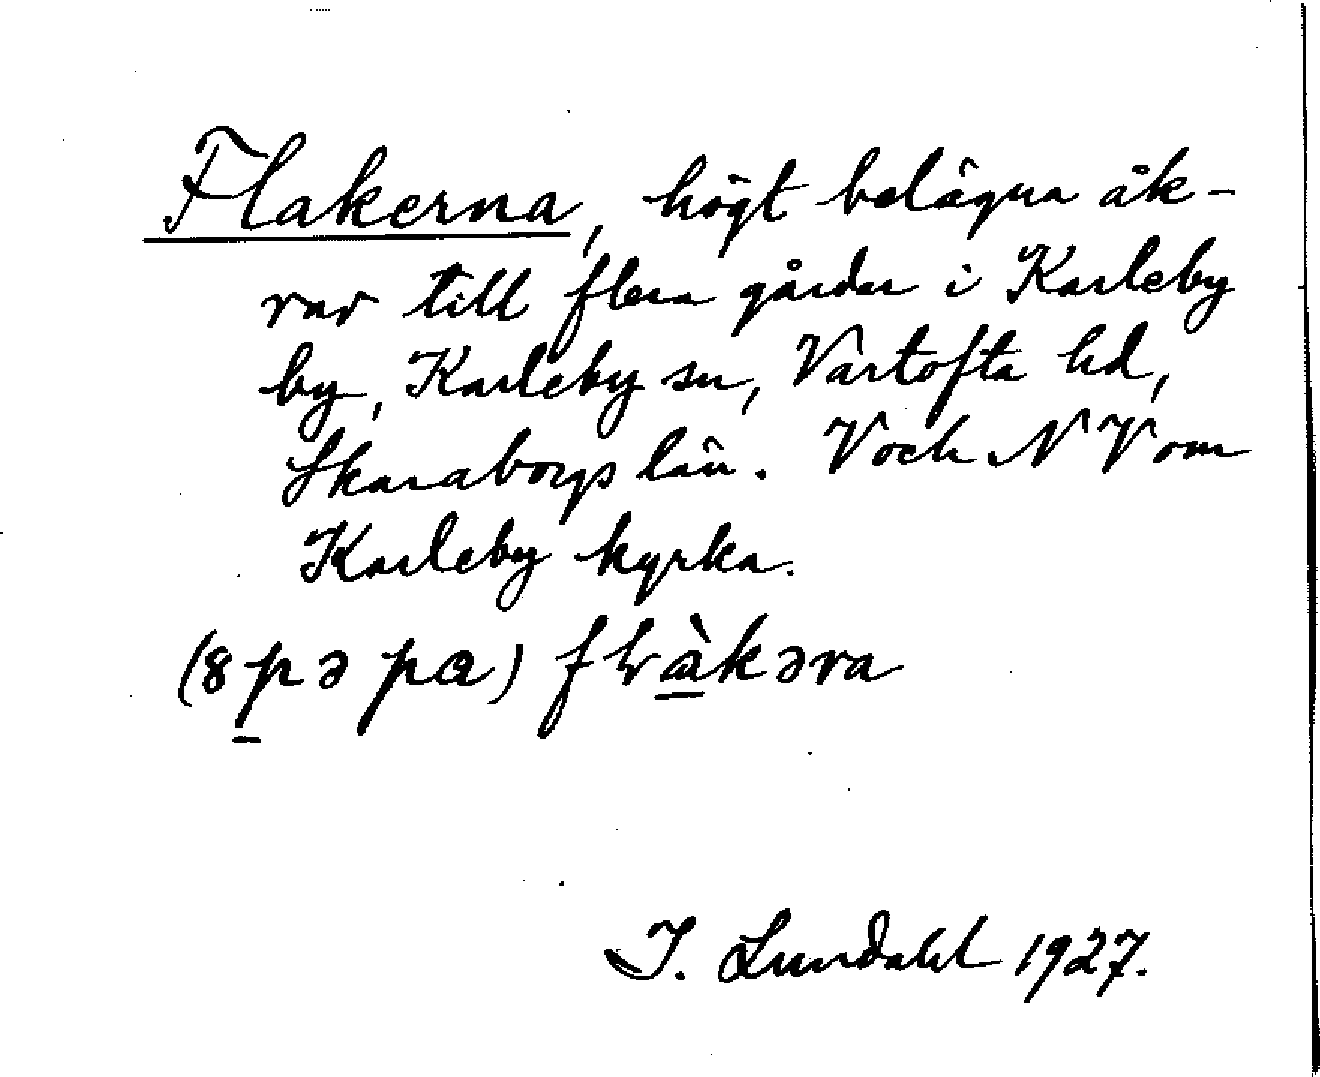 Flakerna, högt belägna åk-
rar till flera gårdar i Karleby
by, Karleby sn, Vartofta hd,
Skaraborgs län. V och NV om
Karleby kyrka.
(8 p ə pa) fLàkəra
I. Lundahl 1927.